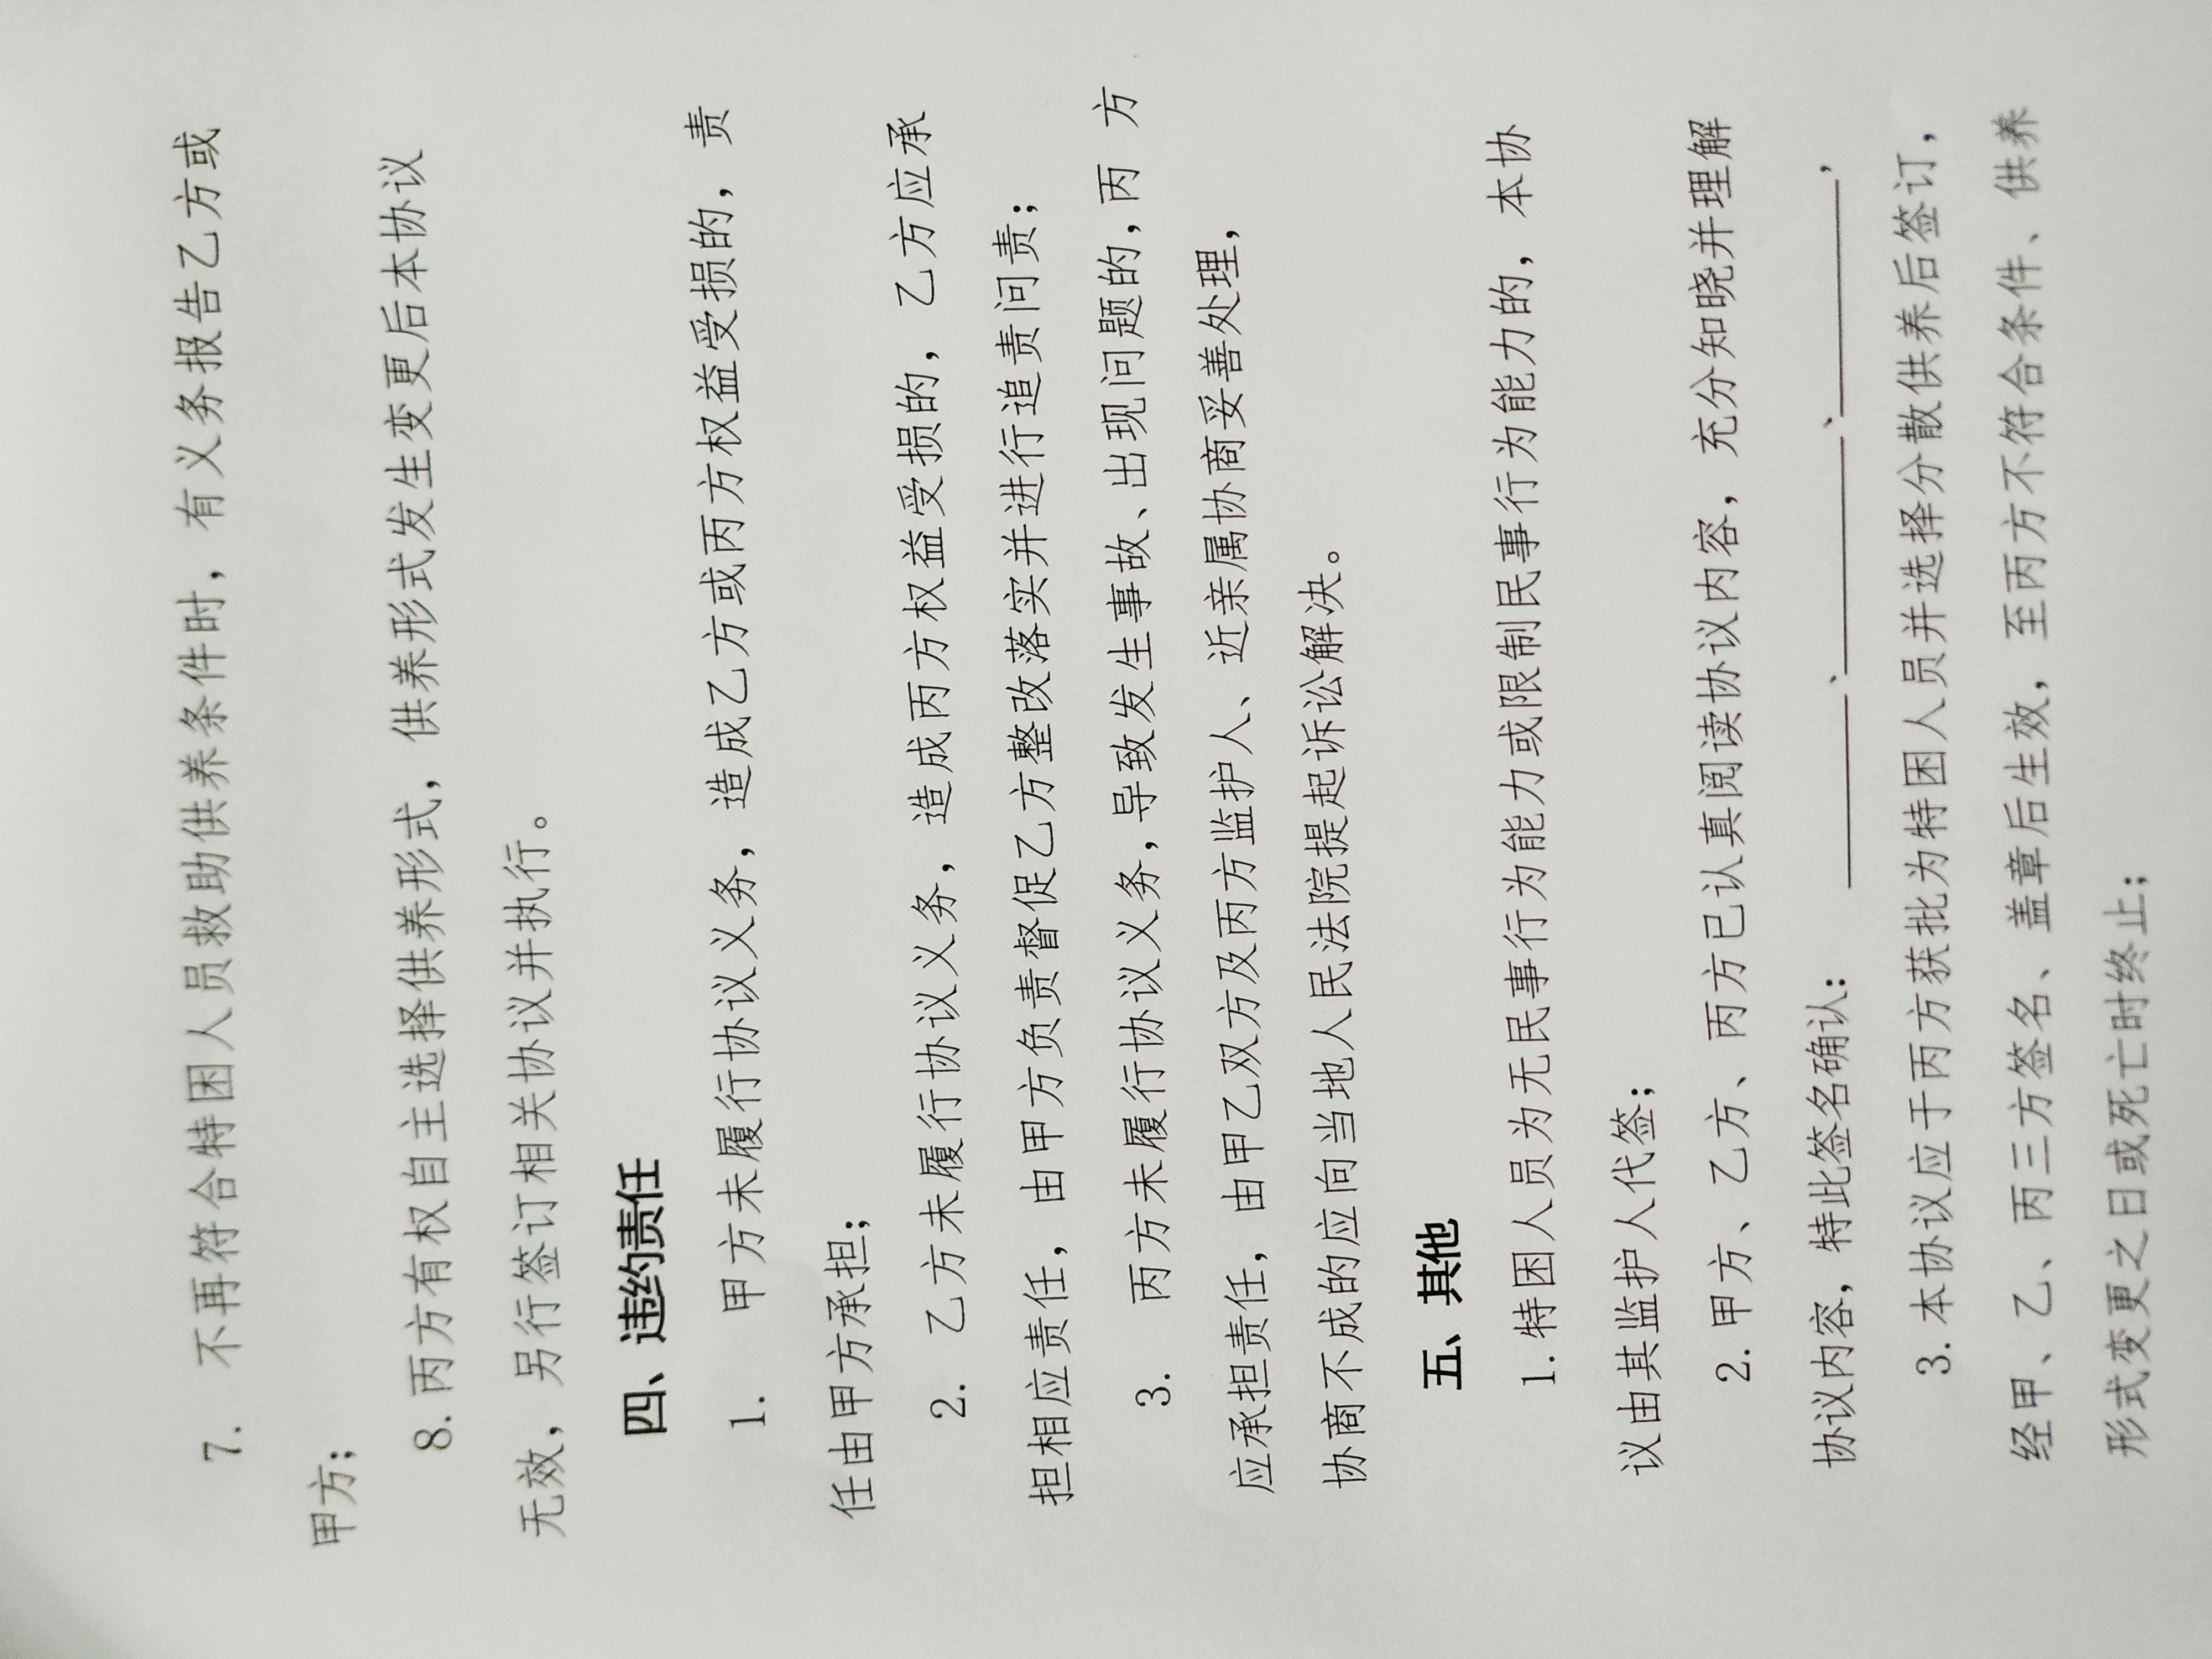 7. 不再符合特困人员救助供养条件时，有义务报告乙方或
甲方；
8. 丙方有权自主选择供养形式，供养形式发生变更后本协议
无效，另行签订相关协议并执行。
四、违约责任
1. 甲方未履行协议义务，造成乙方或丙方权益受损的，责
任由甲方承担；
2. 乙方未履行协议义务，造成丙方权益受损的，乙方应承
担相应责任，由甲方负责督促乙方整改落实并进行追责问责；
3. 丙方未履行协议义务，导致发生事故、出现问题的，丙 方
应承担责任，由甲乙双方及丙方监护人、近亲属协商妥善处理，
协商不成的应向当地人民法院提起诉讼解决。
五、其他
1. 特困人员为无民事行为能力或限制民事行为能力的，本协
议由其监护人代签；
2. 甲方、乙方、丙方已认真阅读协议内容，充分知晓并理解
协议内容，特此签名确认：________、________、________，
3. 本协议应于丙方获批为特困人员并选择分散供养后签订，
经甲、乙、丙三方签名、盖章后生效，至丙方不符合条件、供养
形式变更之日或死亡时终止；